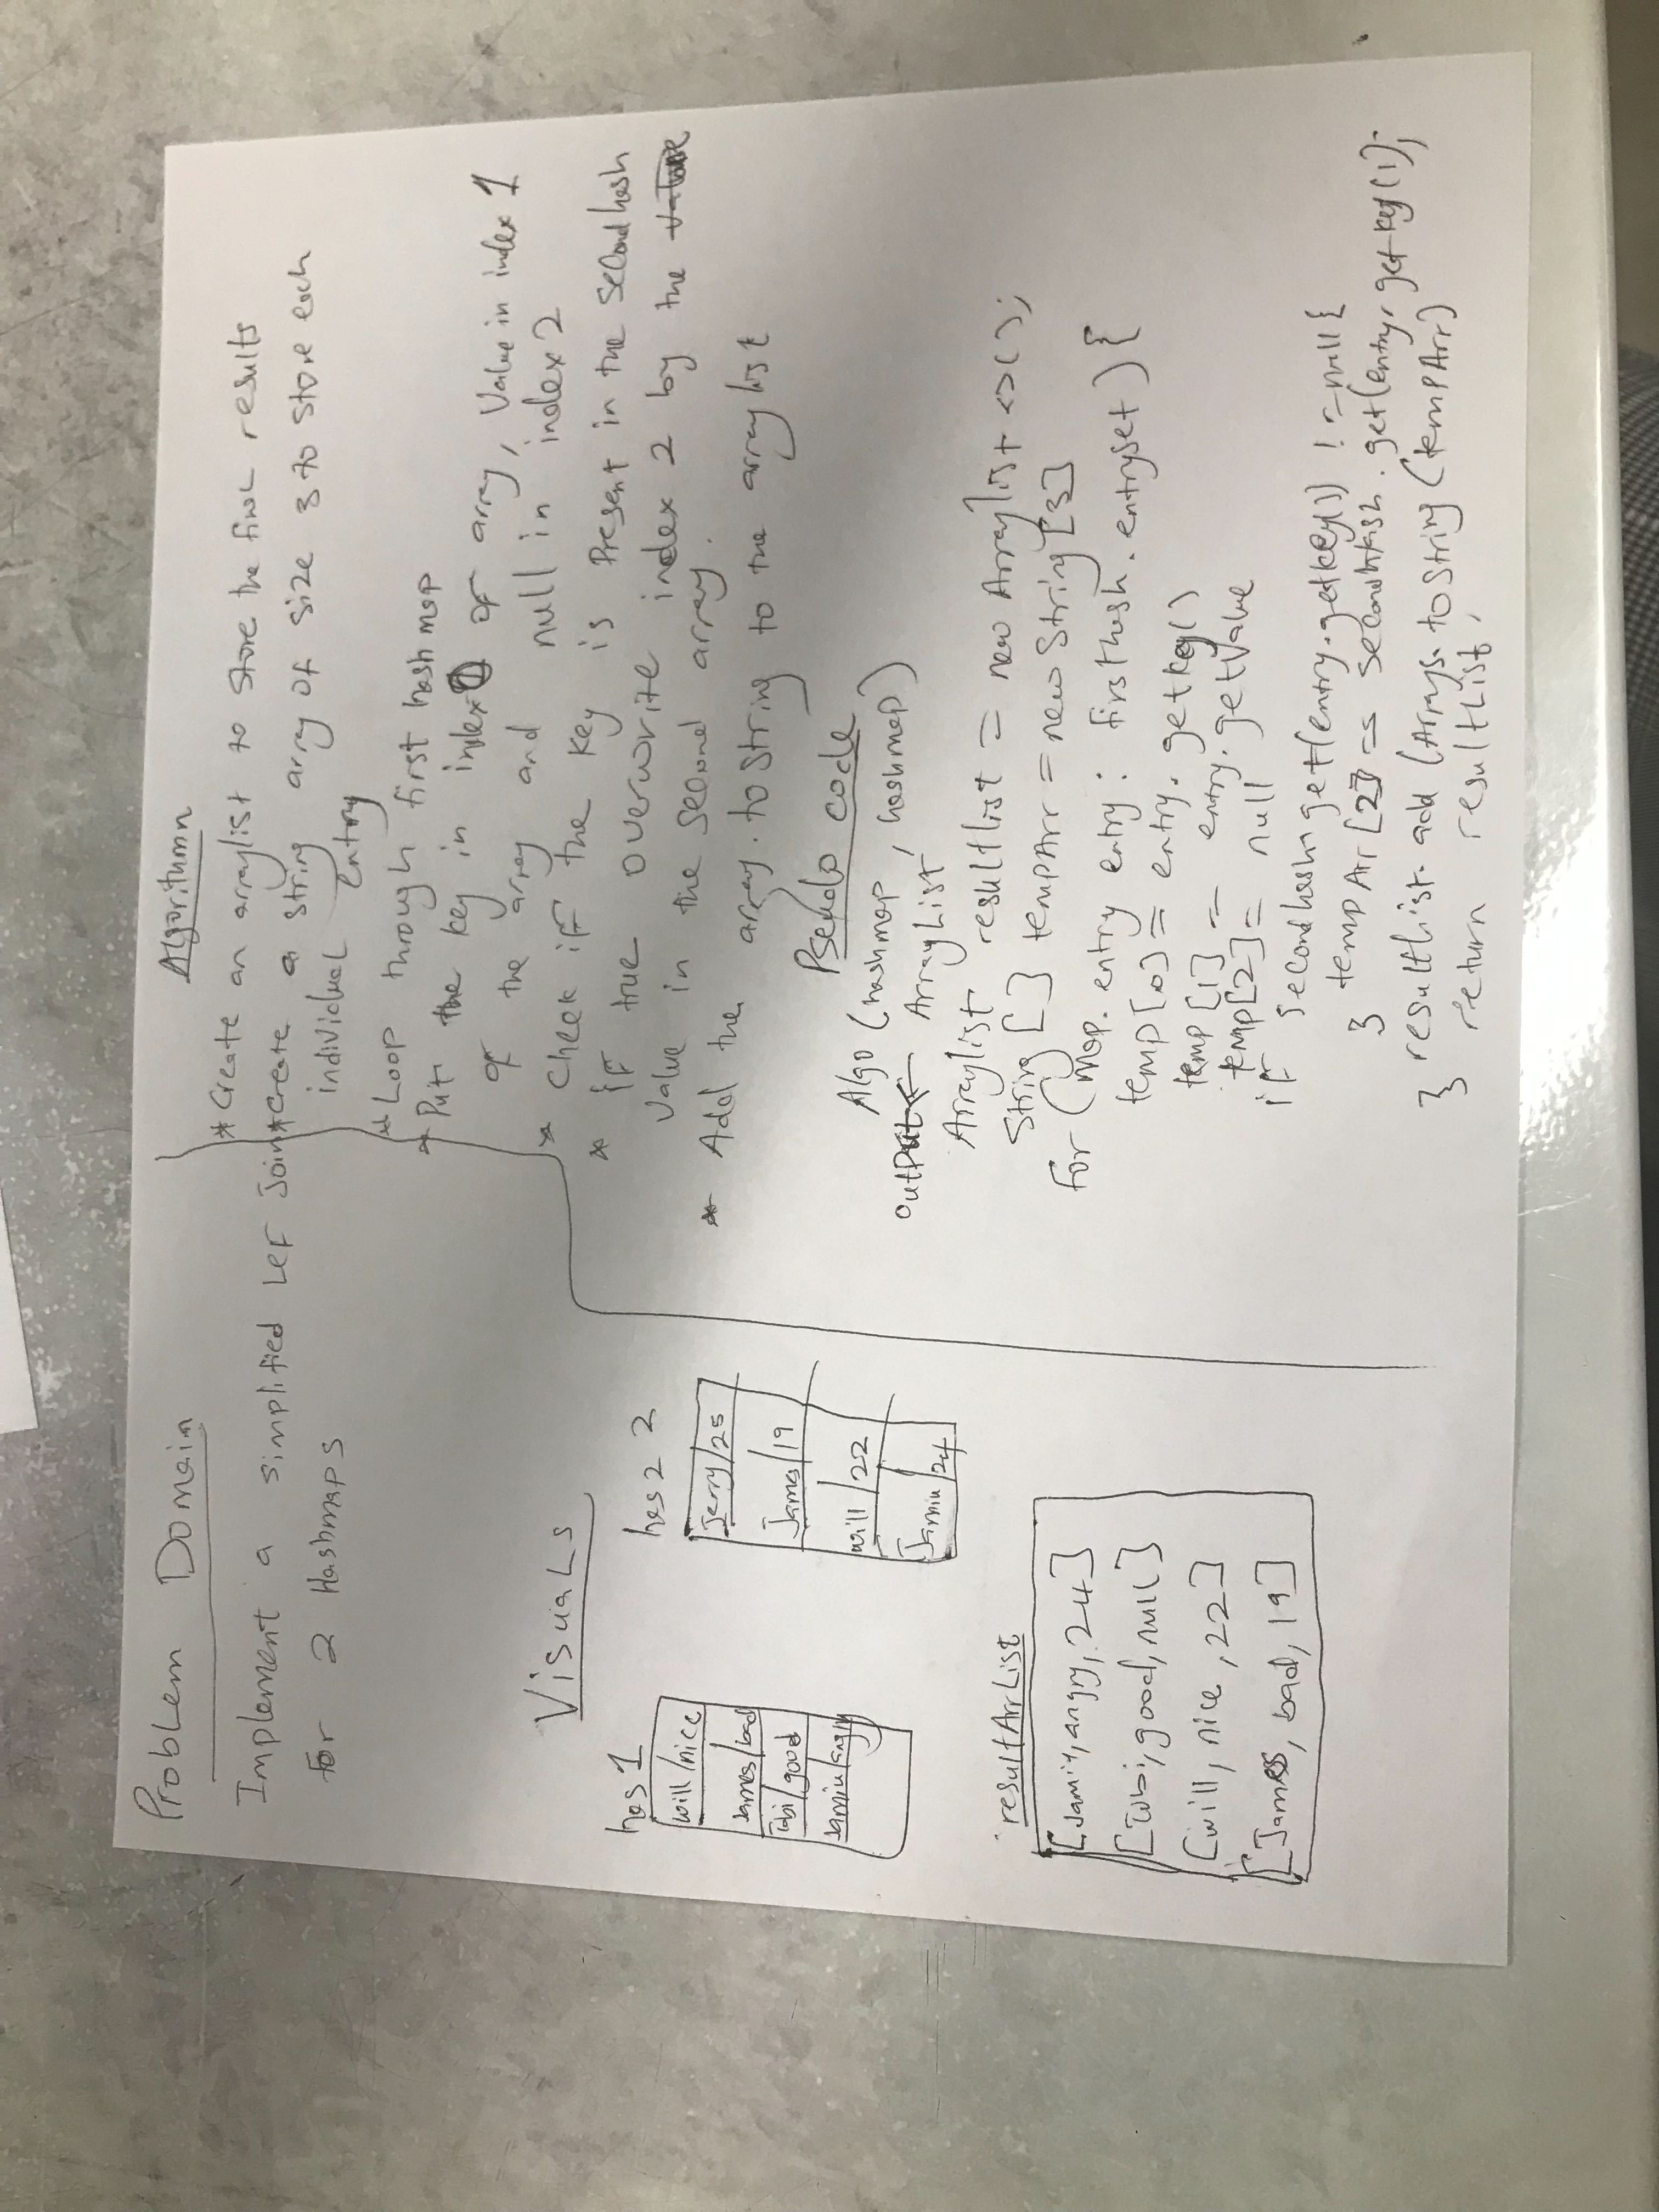 Problem Domain
Implement a simplified Lef Join
for 2 Hashmaps
Visuals
has 1
will/nice
James/bad
Tobi/good
Jamin/angry
has 2 2
Jerry/25
James/19
will/22
Jamin/24
resultArrList
[Jamin, angry, 24]
[Tobi, good, null]
[will, nice, 22]
[James, bad, 19]
Algorithm
* Create an arraylist to store the final results
* create a string array of size 3 to store each
individual entry
* Loop through first hashmap
* Put the key in index 0 of array, Value in index 1
of the array and null in index 2
* Check if the key is Present in the second hash
* if true overwrite index 2 by the
Value in the second array.
* Add the array.toString to the arraylist
Pseudo code
Algo (hashmap, hashmap)
output ← ArrayList
Arraylist resultlist = new Arraylist <>();
String [] tempArr = new String [3]
for (Map.entry entry : firsthash.entryset) {
temp [0] = entry.getkey()
temp [1] = entry.getValue
temp [2] = null
if secondhash get(entry.getkey()) != null {
tempAr [2] = secondHash.get(entry.getkey());
}
resultlist.add (Arrays.toString (tempArr)
} return resultList,